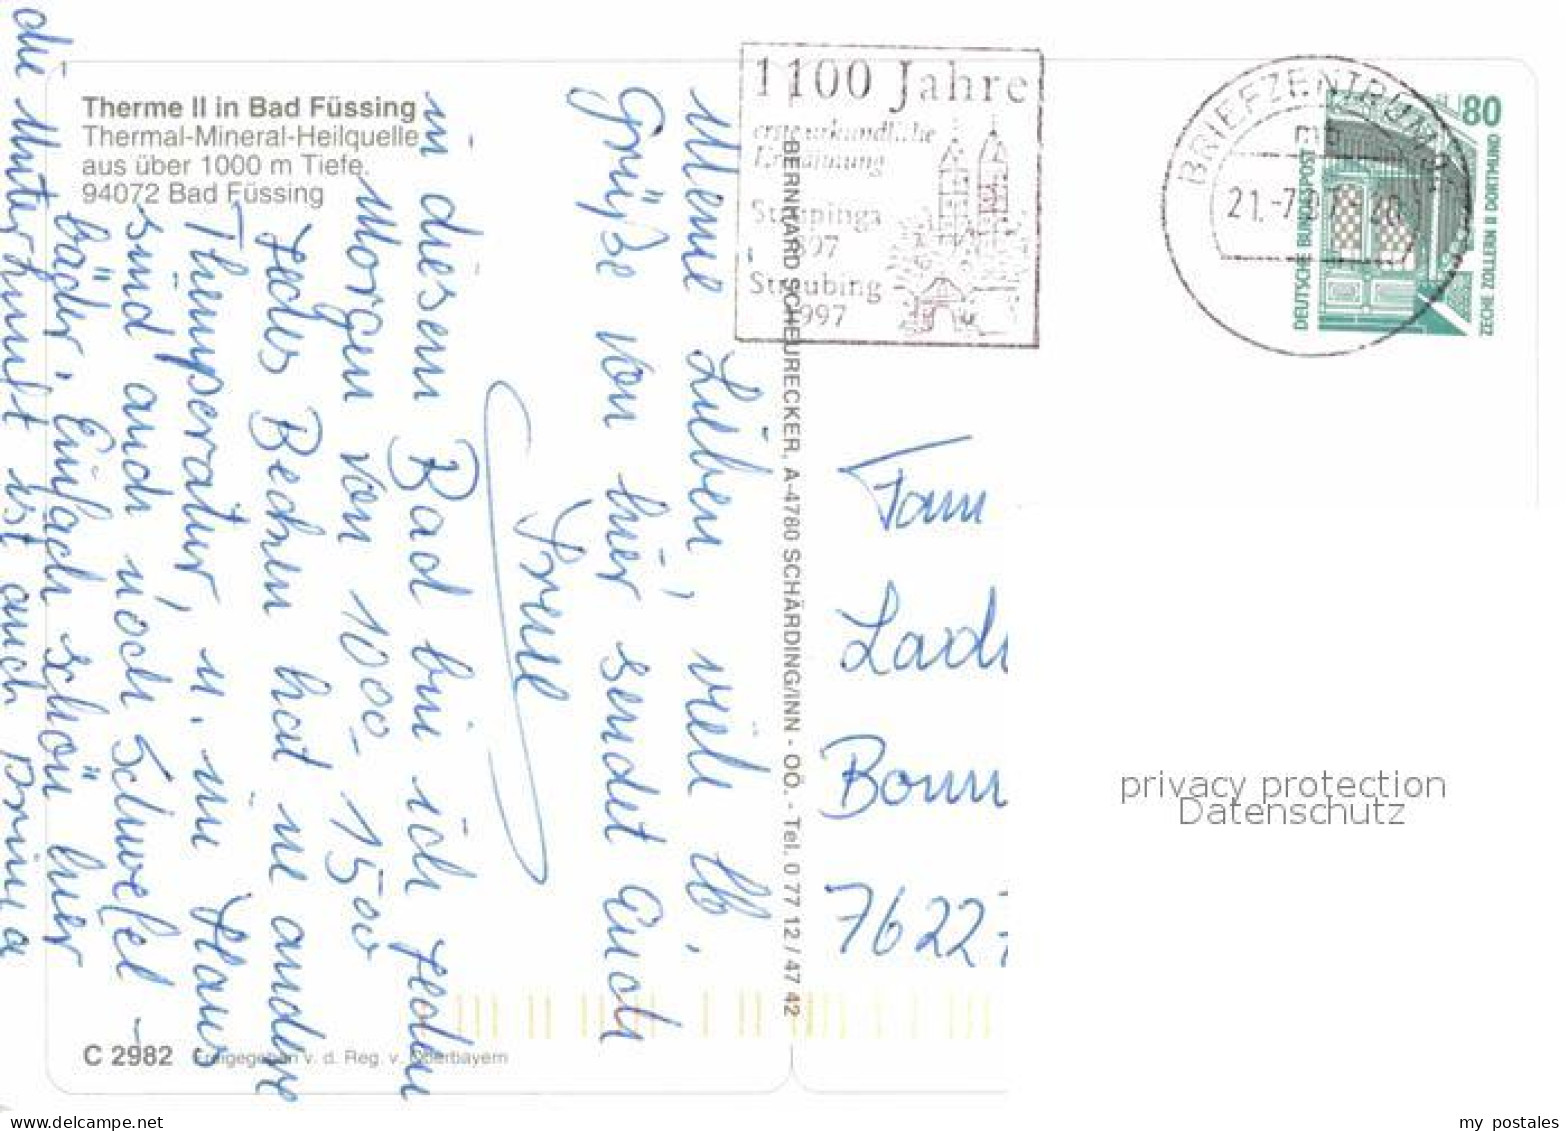 Therme II in Bad Füssing
Thermal-Mineral-Heilquelle
aus über 1000 m Tiefe.
94072 Bad Füssing
Meine Lieben, viele lb.
Grüße von hier sendet Euch
Irene
in diesem Bad bin ich jeden
Morgen von 1000 - 1500
Jedes Becken hat ne andere
Themperatur, u. im Haus
sind auch noch Schwefel-
bäder. Einfach schön hier
die Unterkunft ist auch prima
C 2982
Freigegeben v. d. Reg. v. Oberbayern
BERNHARD SCHEURECKER, A-4780 SCHÄRDING/INN - OÖ. - Tel. 0 77 12 / 47 42
1100 Jahre
erste urkundliche
Erwähnung
Strupinga
897
Straubing
1997
BRIEFZENTRUM
mb
21.-7.
80
DEUTSCHE BUNDESPOST
ZECHE ZOLLERN II DORTMUND
Fam
Lach
Bonn
76227
privacy protection
Datenschutz
my postales